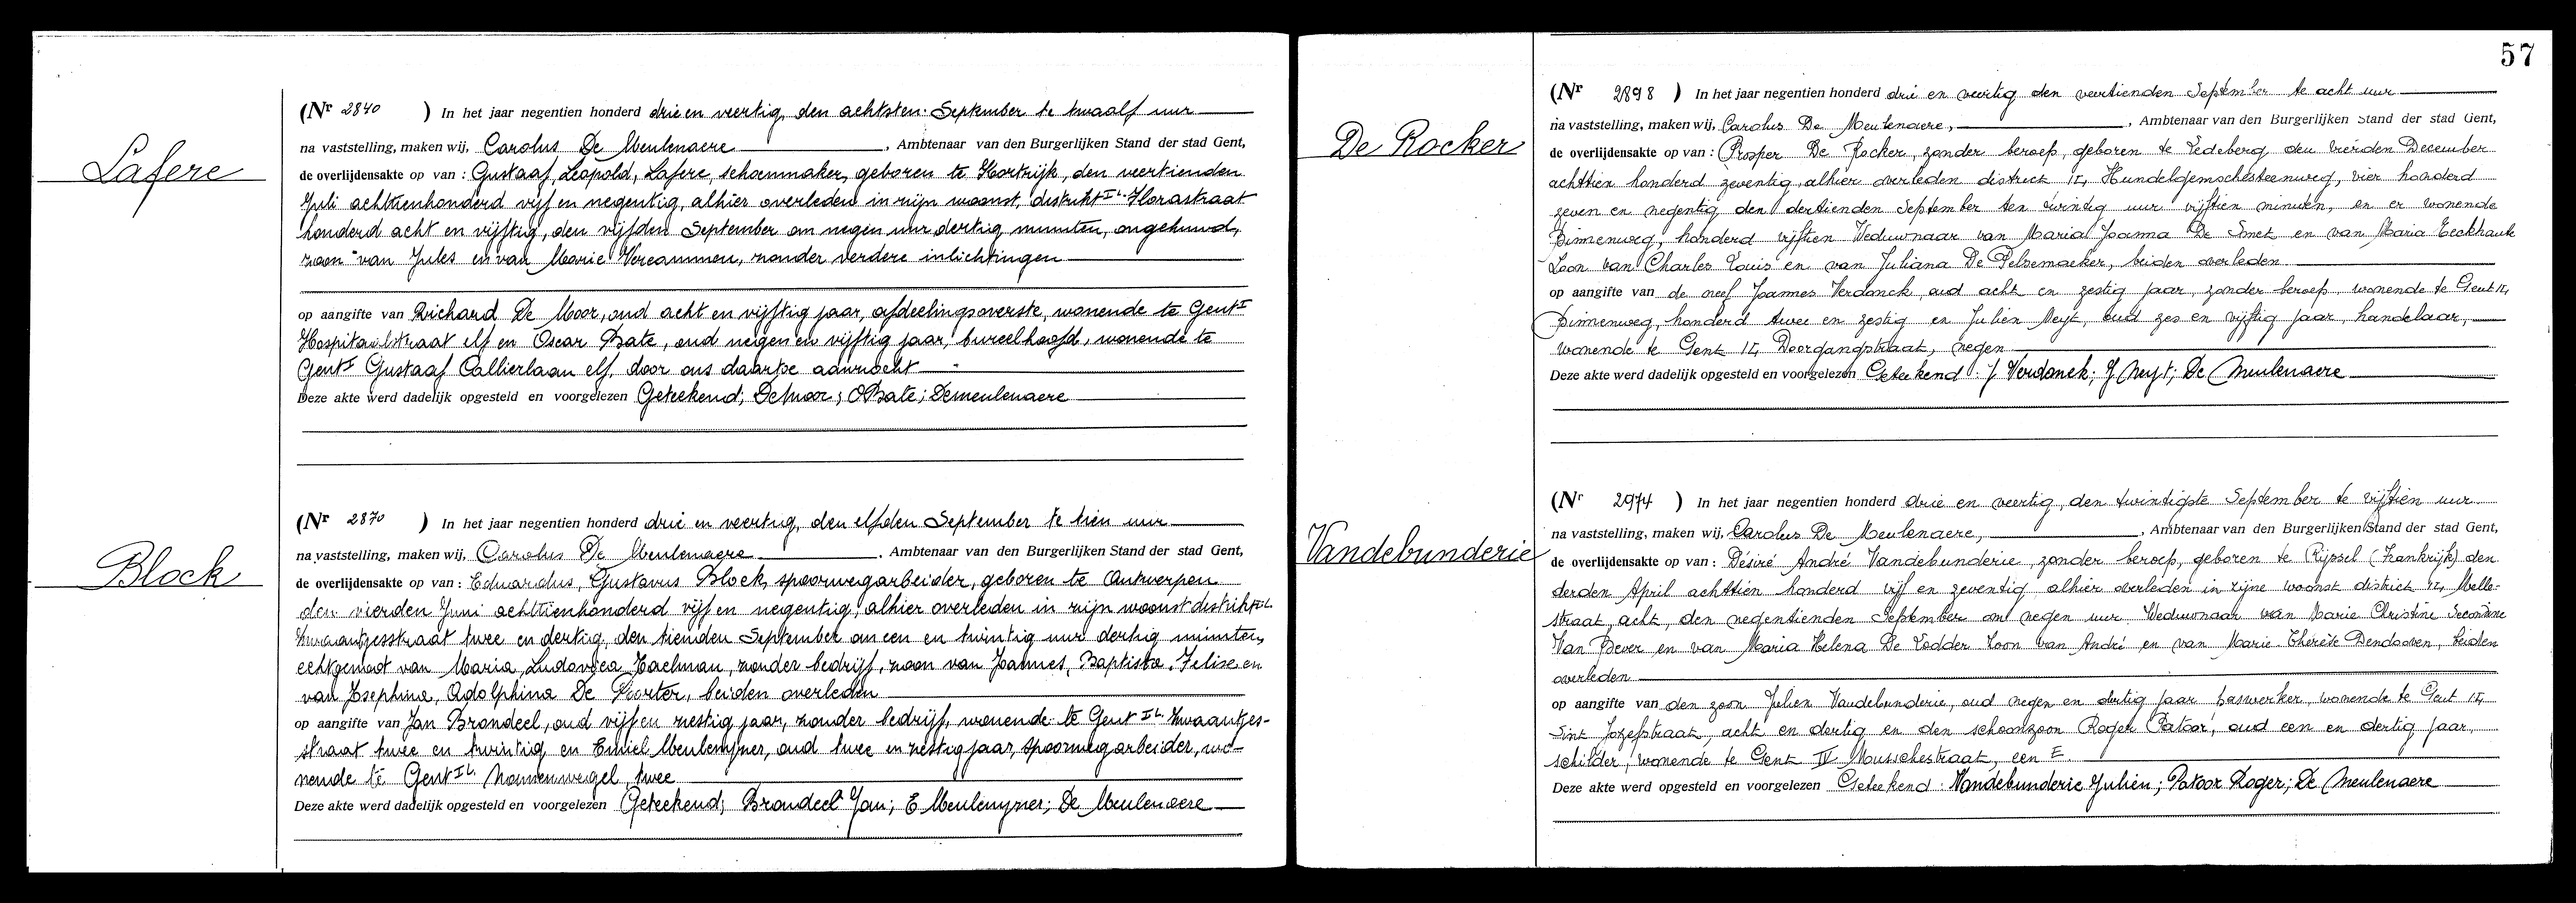 Lafere
(Nr 2840 ) In het jaar negentien honderd drie en veertig, den achtsten September te twaalf uur
na vaststelling, maken wij, Carolus De Meulenaere, Ambtenaar van den Burgerlijken Stand der stad Gent,
de overlijdensakte op van : Gustaaf, Leopold, Lafere, schoenmaker, geboren te Kortrijk, den veertienden
Juli achttienhonderd vijf en negentig, alhier overleden in zijn woonst, distrikt II. Florastraat
honderd acht en vijftig, den vijfden September om negen uur dertig minuten, ongehuwd,
zoon van Jules en van Marie Vercammen, zonder verdere inlichtingen
op aangifte van Richard De Moor, oud acht en vijftig jaar, afdeelingsoverste, wonende te Gent I
Hospitaalstraat elf en Oscar Bate, oud negen en vijftig jaar, bureelhoofd, wonende te
Gent I Gustaaf Callierlaan elf, door ons daartoe aanzocht
Deze akte werd dadelijk opgesteld en voorgelezen Geteekend; Demoor; OBate; Demeulenaere
Block
(Nr 2870 ) In het jaar negentien honderd drie en veertig, den elfden September te tien uur
na vaststelling, maken wij, Carolus De Meulenaere, Ambtenaar van den Burgerlijken Stand der stad Gent,
de overlijdensakte op van : Eduardus, Gustavus Block, spoorwegarbeider, geboren te Antwerpen
den vierden Juni achttienhonderd vijf en negentig, alhier overleden in zijn woonst distrikt II.
Zwaantjesstraat twee en dertig, den tienden September om een en twintig uur dertig minuten,
echtgenoot van Maria, Ludovica Haelman, zonder bedrijf, zoon van Joannes, Baptista, Felix en
van Josephina, Adolphina De Poorter, beiden overleden
op aangifte van Jan Brondeel, oud vijf en zestig jaar, zonder bedrijf, wonende te Gent II. Zwaantjes-
straat twee en twintig en Emiel Meulenyzer, oud twee en zestig jaar, spoorwegarbeider, wo-
nende te Gent II. twee
Deze akte werd dadelijk opgesteld en voorgelezen Geteekend; Brondeel Jan; E Meulenyzer; De Meulenaere
57
De Rocker
(Nr 2898 ) In het jaar negentien honderd drie en veertig den veertienden September te acht uur
na vaststelling, maken wij, Carolus De Meulenaere, Ambtenaar van den Burgerlijken Stand der stad Gent,
de overlijdensakte op van : Prosper De Rocker, zonder beroep, geboren te Ledeberg den vierden December
achttien honderd zeventig, alhier overleden district II, Hundelgemschesteenweg, vier honderd
zeven en negentig den dertienden September ten twintig uur vijftien minuten, en er wonende
Binnenweg, honderd vijftien Weduwnaar van Maria Joanna De Smet en van Maria Eeckhaut
Zoon van Charles Louis en van Juliana De Pelsemaeker, beiden overleden
op aangifte van de neef Joannes Verdonck, oud acht en zestig jaar, zonder beroep, wonende te Gent II,
Binnenweg, honderd twee en zestig en Julien Neyt, oud zes en vijftig jaar, handelaar,
wonende te Gent II, Doorgangstraat, negen
Deze akte werd dadelijk opgesteld en voorgelezen Geteekend : J Verdonck; J Neyt; De Meulenaere
Vandebunderie
(Nr 2974 ) In het jaar negentien honderd drie en veertig, den twintigste September te vijftien uur
na vaststelling, maken wij, Carolus De Meulenaere, Ambtenaar van den Burgerlijken Stand der stad Gent,
de overlijdensakte op van : Désiré André Vandebunderie, zonder beroep, geboren te Rijssel (Frankrijk) den
derden April achttien honderd vijf en zeventig alhier overleden in zijne woonst district II, Melle-
straat, acht, den negentienden September om negen uur Weduwnaar van Marie Christine
Van Bever en van Maria Helena De Lodder Zoon van André en van Marie Thérèse Dendooven, beiden
overleden
op aangifte van den zoon Julien Vandebunderie, oud negen en dertig jaar baswerker, wonende te Gent II,
Sint Jozefstraat, acht en dertig en den schoonzoon Roger Patoor, oud een en dertig jaar,
schilder, wonende te Gent IV Mousschestraat, een E.
Deze akte werd opgesteld en voorgelezen Geteekend : Vandebunderie Julien; Patoor Roger; De Meulenaere